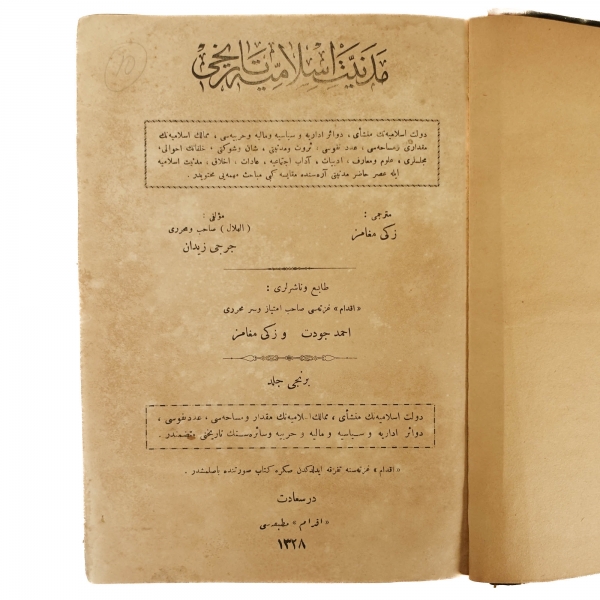 مدنیت اسلامیه تاریخی
دولت اسلامیه‌نك منشأی ، دوائر اداریه و سیاسیه و مالیه و حربیه‌سی ، ممالك اسلامیه‌نك
مقداری و مساحه‌سی ؛ عدد نفوسی ؛ ثروت و مدنیتی ، شان و شوکتی . خلفانك احوالی .
مجلسلری ، علوم و معارف ، ادبیات ، آداب اجتماعیه ، عادات ، اخلاق ، مدنیت اسلامیه
ایله عصر حاضر مدنیتی آره‌سنده مقایسه کبی مباحث مهمه‌یی محتویدر .
مترجمی :
زکی مغامز
مؤلفی :
( الهلال ) صاحب و محرری
جرجی زیدان
طابع و ناشرلری :
« اقدام » غزته‌سی صاحب امتیاز و سر محرری
احمد جودت و زکی مغامز
برنجی جلد
دولت اسلامیه‌نك منشأی ، ممالك اسلامیه‌نك مقدار و مساحه‌سی ، عدد نفوسی ،
دوائر اداریه و سیاسیه و مالیه و حربیه و سائره‌سنك تاریخنی متضمندر .
« اقدام » غزته‌سنه تفرقه ایدلدکدن صکره کتاب صورتنده باصلمشدر .
در سعادت
« اقدام » مطبعه‌سی
١٣٢٨